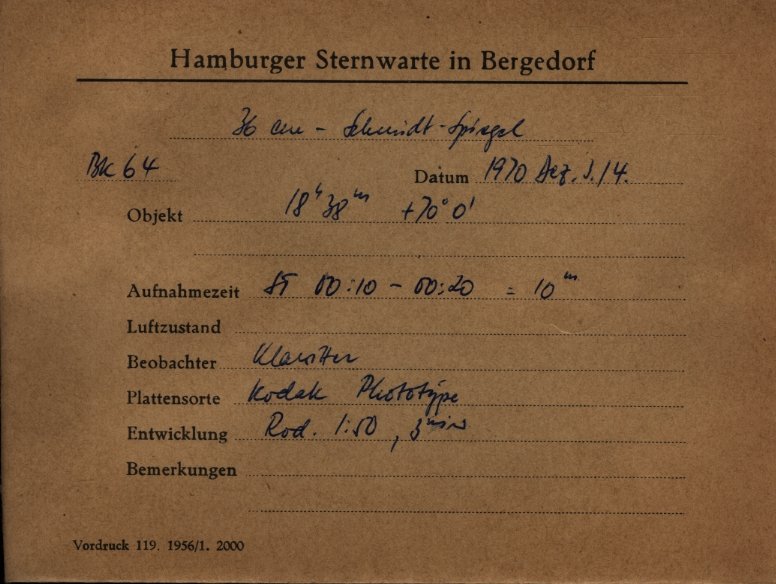 Hamburger Sternwarte in Bergedorf
36 cm - Schmidt-Spiegel
BK 64 Datum 1970 Dez. 3./4.
Objekt 18ʰ 38ᵐ +70° 0'
Aufnahmezeit ST 00:10 - 00:20 = 10ᵐ
Luftzustand
Beobachter
Plattensorte Kodak Phototype
Entwicklung Rod. 1:50, 3ᵐⁱⁿ
Bemerkungen
Vordruck 119. 1956/1. 2000